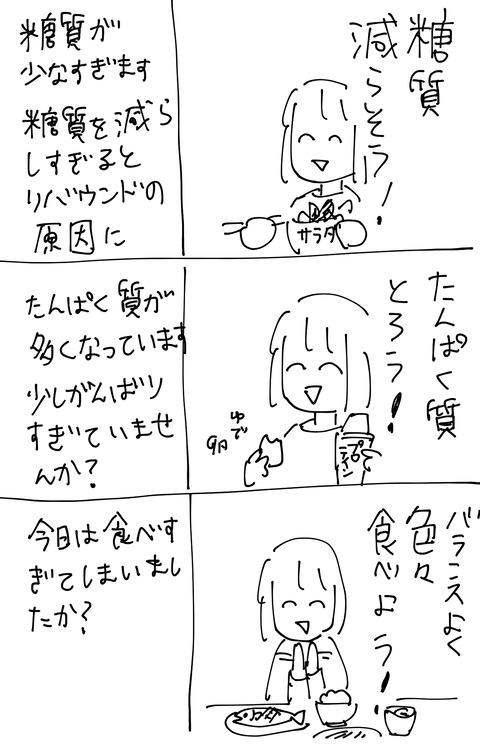 糖質
減らそう!
サラダ
糖質が
少なすぎます
糖質を減ら
しすぎると
リバウンドの
原因に
たんぱく質
とろう!
ゆで
卵
プロ
テイン
たんぱく質が
多くなっています
少しがんばり
すぎていませ
んか?
バランスよく
色々
食べよう!
今日は食べす
ぎてしまいまし
たか?